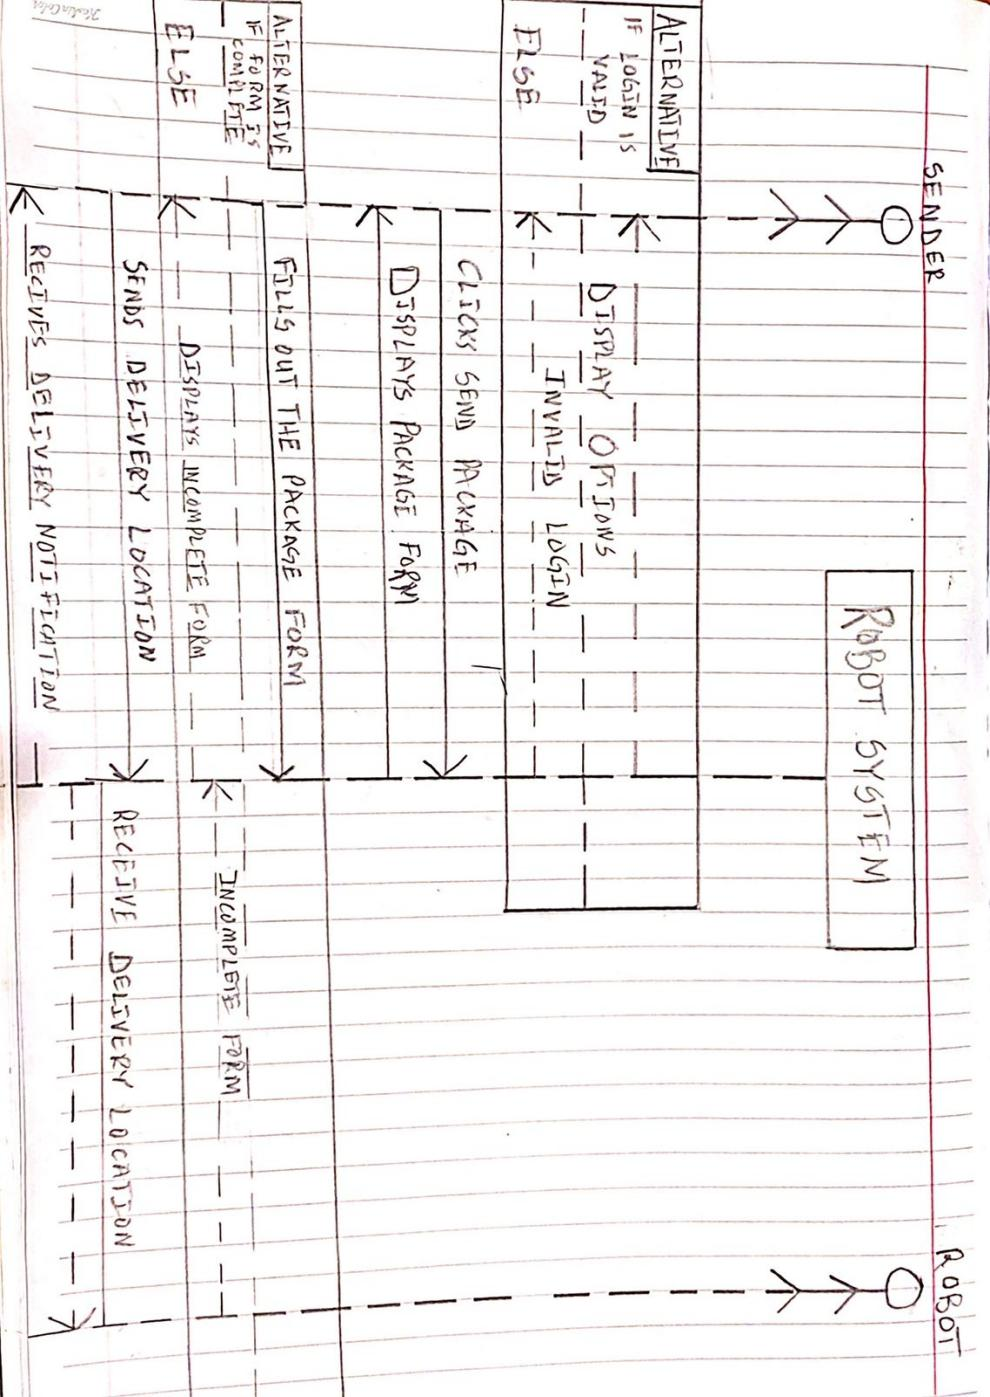 SENDER
ROBOT SYSTEM
ROBOT
ALTERNATIVE
IF LOGIN IS
VALID
DISPLAY OPTIONS
ELSE
INVALID LOGIN
CLICKS SEND PACKAGE
DISPLAYS PACKAGE FORM
ALTERNATIVE
IF FORM IS
COMPLETE
FILLS OUT THE PACKAGE FORM
INCOMPLETE FORM
ELSE
DISPLAYS INCOMPLETE FORM
SENDS DELIVERY LOCATION
RECEIVE DELIVERY LOCATION
RECIVES DELIVERY NOTIFICATION